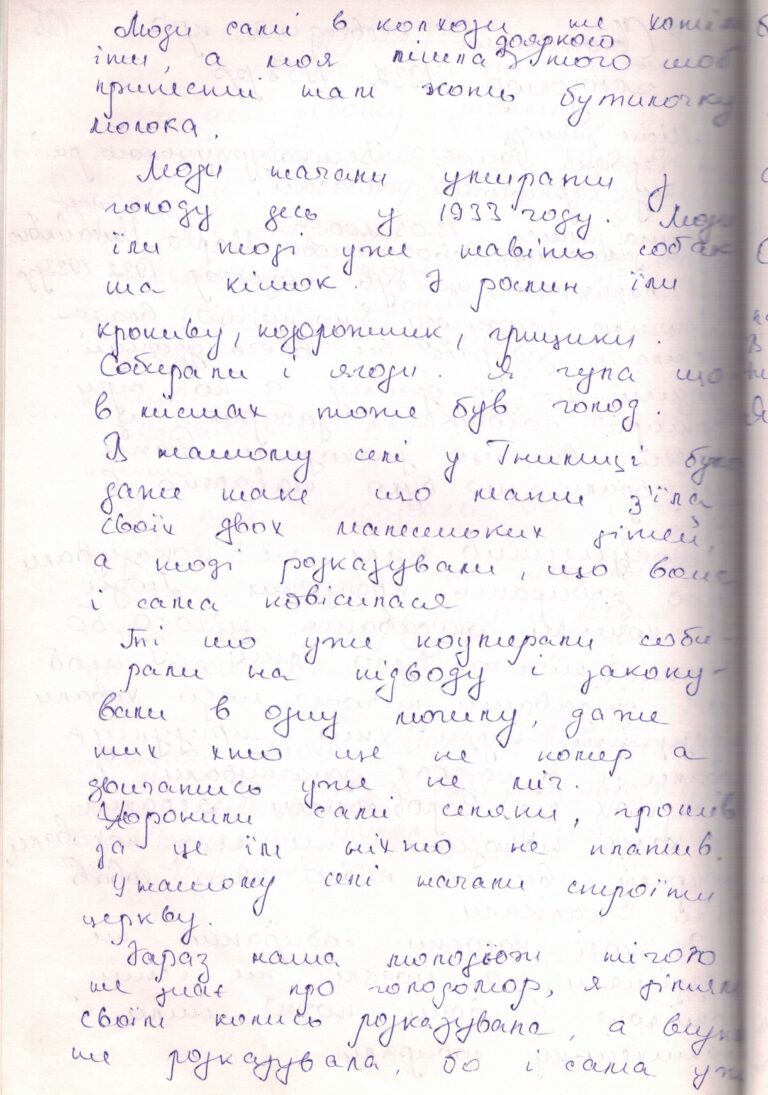 Люди самі в колхози не хотіли
дояркою
іти, а моя пішла з того шоб
принести нам хоть бутилочку
молока.
Люди начали умирати з
голоду десь у 1933 году. Люди
їли тоді уже навіть собак
та кішок. З рослин їли
кропиву, подорожник, грицики.
Собирали і ягоди. Я чула що
в містах тоже був голод.
В нашому селі у Гнилиці було
даже таке шо мати з'їла
своїх двох малесиньких дітей,
а тоді розказували, що вона
і сама повісилася
Ті шо уже поумерали соби-
рали на підводу і закопу-
вали в одну могилу, даже
тих хто ще не помер а
двигатись уже не міг.
Хоронили самі селяни, грошів
за це їм ніхто не платив.
У нашому селі начали строїти
церкву.
Зараз наша молодьож нічого
не знає про голодомор, я дітям
своїм колись розказувала, а внукам
не розказувала, бо і сама уже